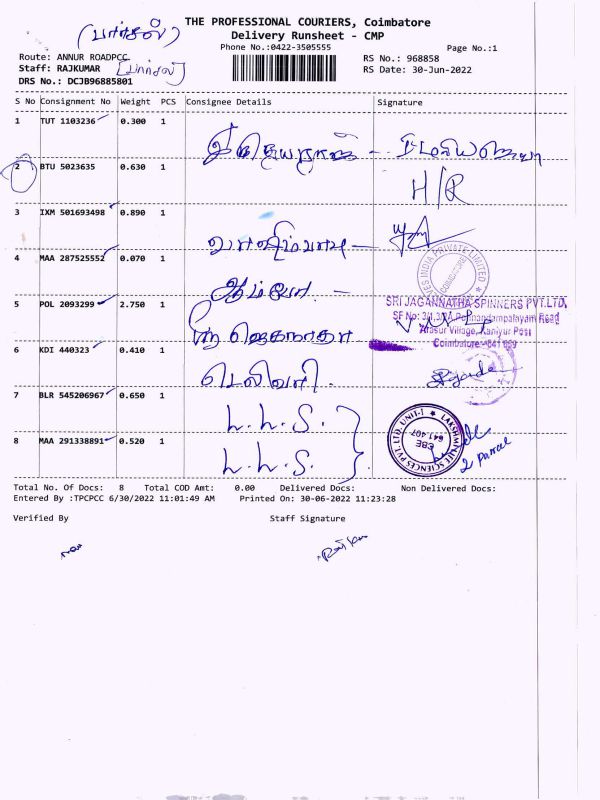 (பார்சல்)
THE PROFESSIONAL COURIERS, Coimbatore
Delivery Runsheet - CMP
Phone No.:0422-3505555
Page No.:1
Route: ANNUR ROADPCC
RS No.: 968858
Staff: RAJKUMAR [பார்சல்]
RS Date: 30-Jun-2022
DRS No.: DCJB96885801
S No Consignment No Weight PCS Consignee Details Signature
1 TUT 1103236 0.300 1
2 BTU 5023635 0.630 1 H/R
3 IXM 501693498 0.890 1
4 MAA 287525552 0.070 1
5 POL 2093299 2.750 1 ஸ்ரீ ஜெகநாதா
SRI JAGANNATHA SPINNERS PVT.LTD.
Arasur Village, Kaniyur Post
6 KDI 440323 0.410 1 டெலிவரி
7 BLR 545206967 0.650 1 L.H.S.
8 MAA 291338891 0.520 1 L.H.S. 2 parcel
Total No. Of Docs: 8 Total COD Amt: 0.00 Delivered Docs: Non Delivered Docs:
Entered By :TPCPCC 6/30/2022 11:01:49 AM Printed On: 30-06-2022 11:23:28
Verified By Staff Signature